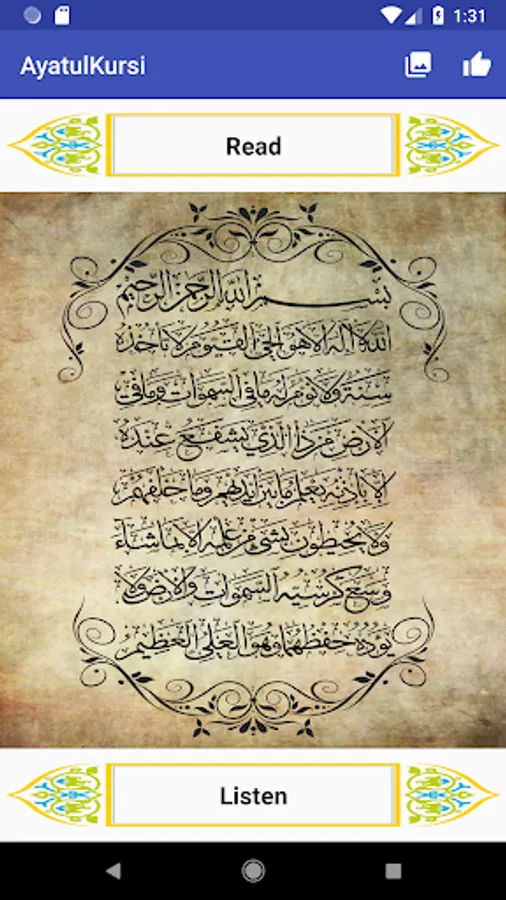 1:31
AyatulKursi
Read
بسم الله الرحمن الرحيم
الله لا اله الا هو الحي القيوم لا تاخذه
سنة ولا نوم له ما في السموات وما في
الارض من ذا الذي يشفع عنده
الا باذنه يعلم ما بين ايديهم وما خلفهم
ولا يحيطون بشئ من علمه الا بما شاء
وسع كرسيه السموات والارض ولا
يؤده حفظهما وهو العلي العظيم
Listen